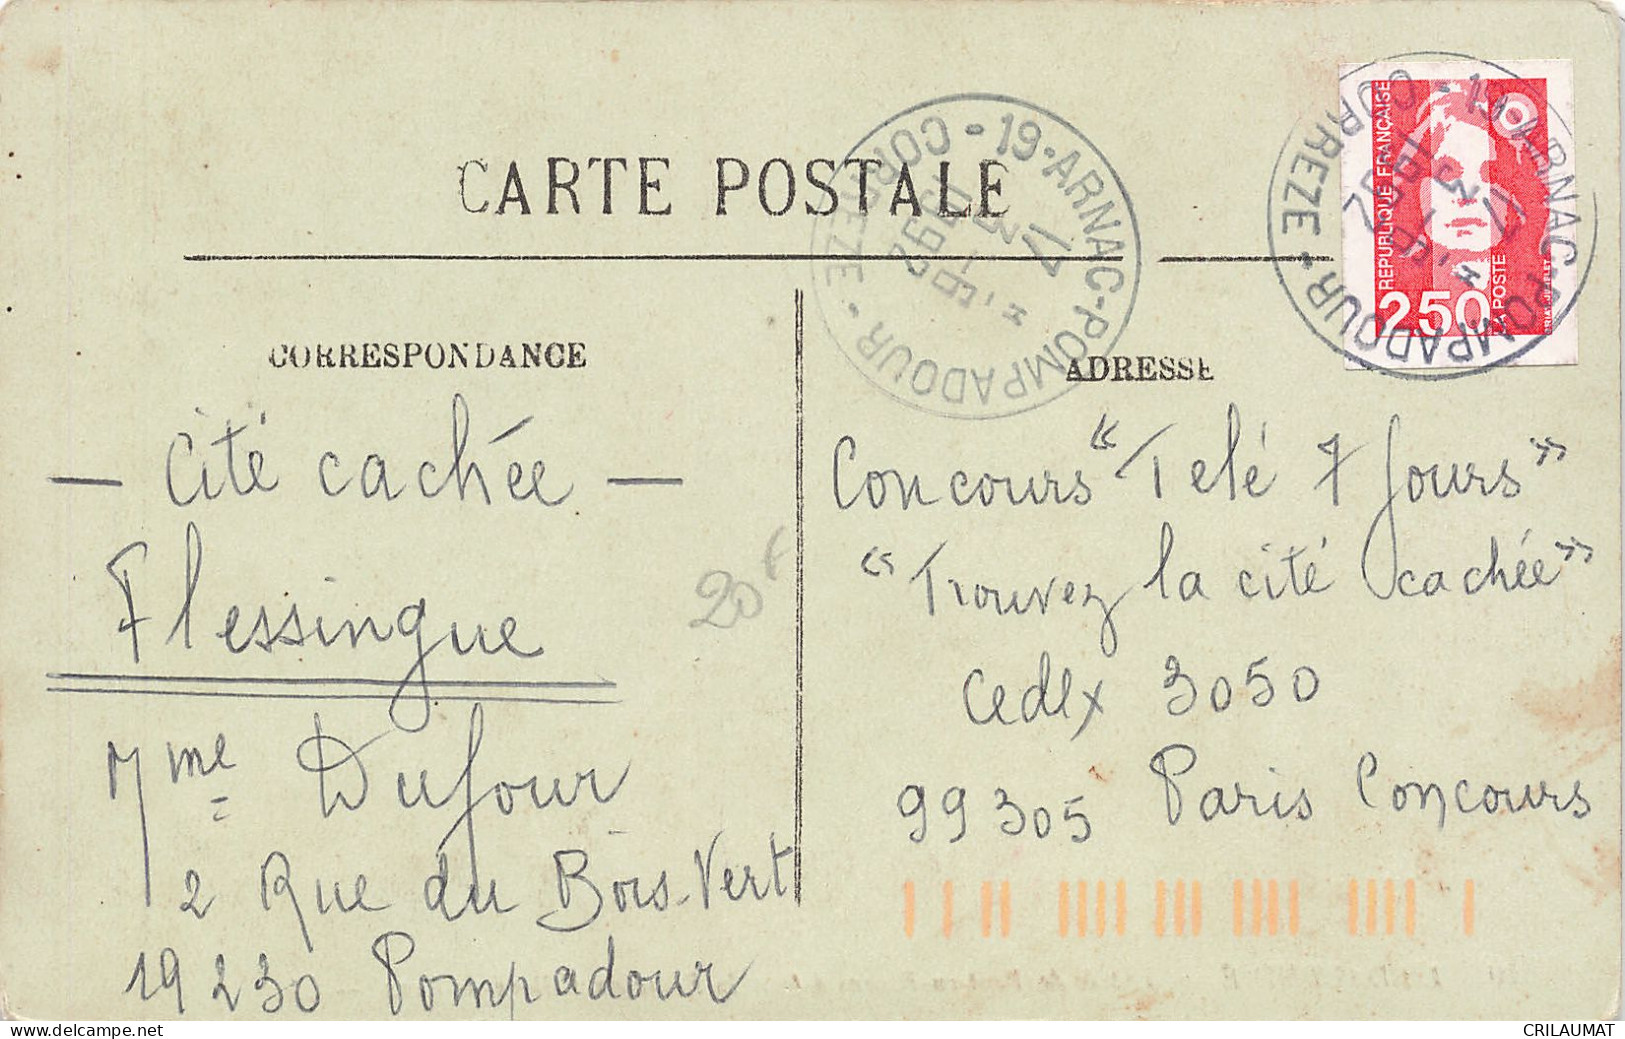 CARTE POSTALE
CORRESPONDANCE
ADRESSE
19-ARNAC-POMPADOUR - CORREZE -
17 H
3 - 6
1992
19-ARNAC-POMPADOUR - CORREZE -
17 H
3 - 6
1992
REPUBLIQUE FRANÇAISE
2,50
LA POSTE
— Cité cachée —
Flessingue
Mme Dufour
2 Rue du Bois-Vert
19230 Pompadour
20 F
Concours "Telé 7 Jours"
"Trouvez la cité cachée"
Cedex 3050
99305 Paris Concours
CRILAUMAT